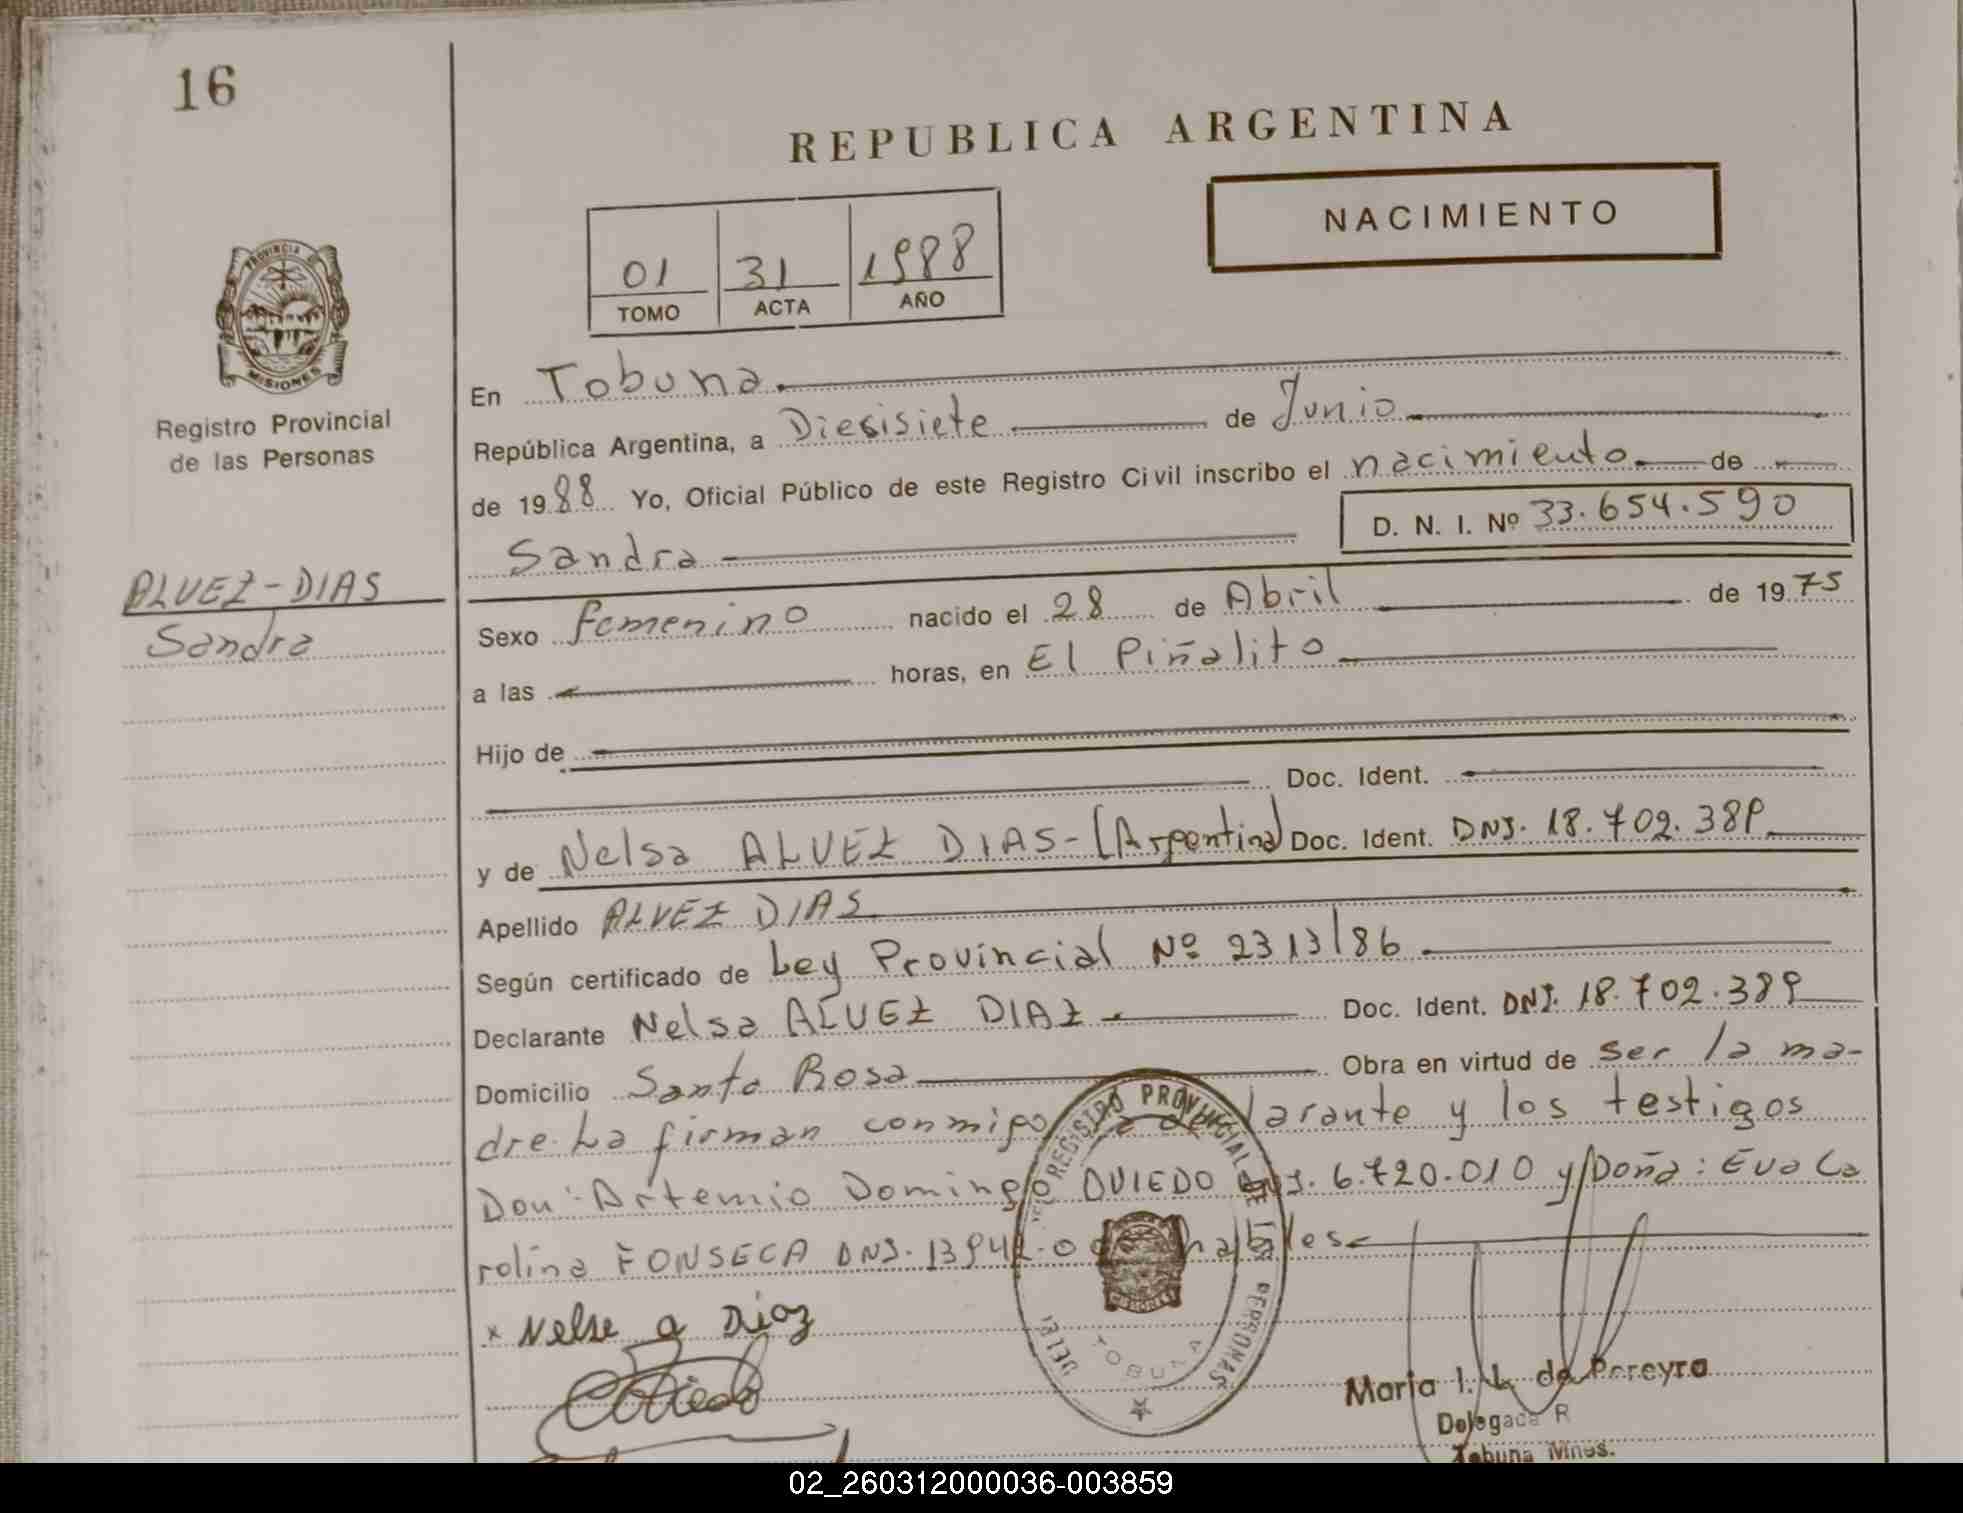 16
REPUBLICA ARGENTINA
NACIMIENTO
01 31 1988
TOMO ACTA AÑO
PROVINCIA DE
MISIONES
Registro Provincial
de las Personas
En Tobuna
República Argentina, a Diesisiete de Junio
de 1988 Yo, Oficial Público de este Registro Civil inscribo el nacimiento de
D. N. I. Nº 33.654.590
Sandra
ALVEZ-DIAS
Sandra
Sexo femenino nacido el 28 de Abril de 1975
a las horas, en El Piñalito
Hijo de
Doc. Ident.
y de Nelsa ALVEZ DIAS-(Argentina) Doc. Ident. DNI. 18.702.389
Apellido ALVEZ DIAS
Según certificado de Ley Provincial Nº 2313/86
Declarante Nelsa ALVEZ DIAZ Doc. Ident. DNI. 18.702.389
Domicilio Santa Rosa Obra en virtud de ser la ma-
dre. La firman conmigo la declarante y los testigos
Don: Artemio Domingo OVIEDO DNI. 6.720.010 y Doña: Eva Ca
rolina FONSECA DNI. habiles
REGISTRO PROVINCIAL DE LAS PERSONAS
TOBUNA
x Nelse a Diaz
Oviedo
Maria I. L. de Pereyra
Delegada R
Tobuna Mnes.
02_260312000036-003859